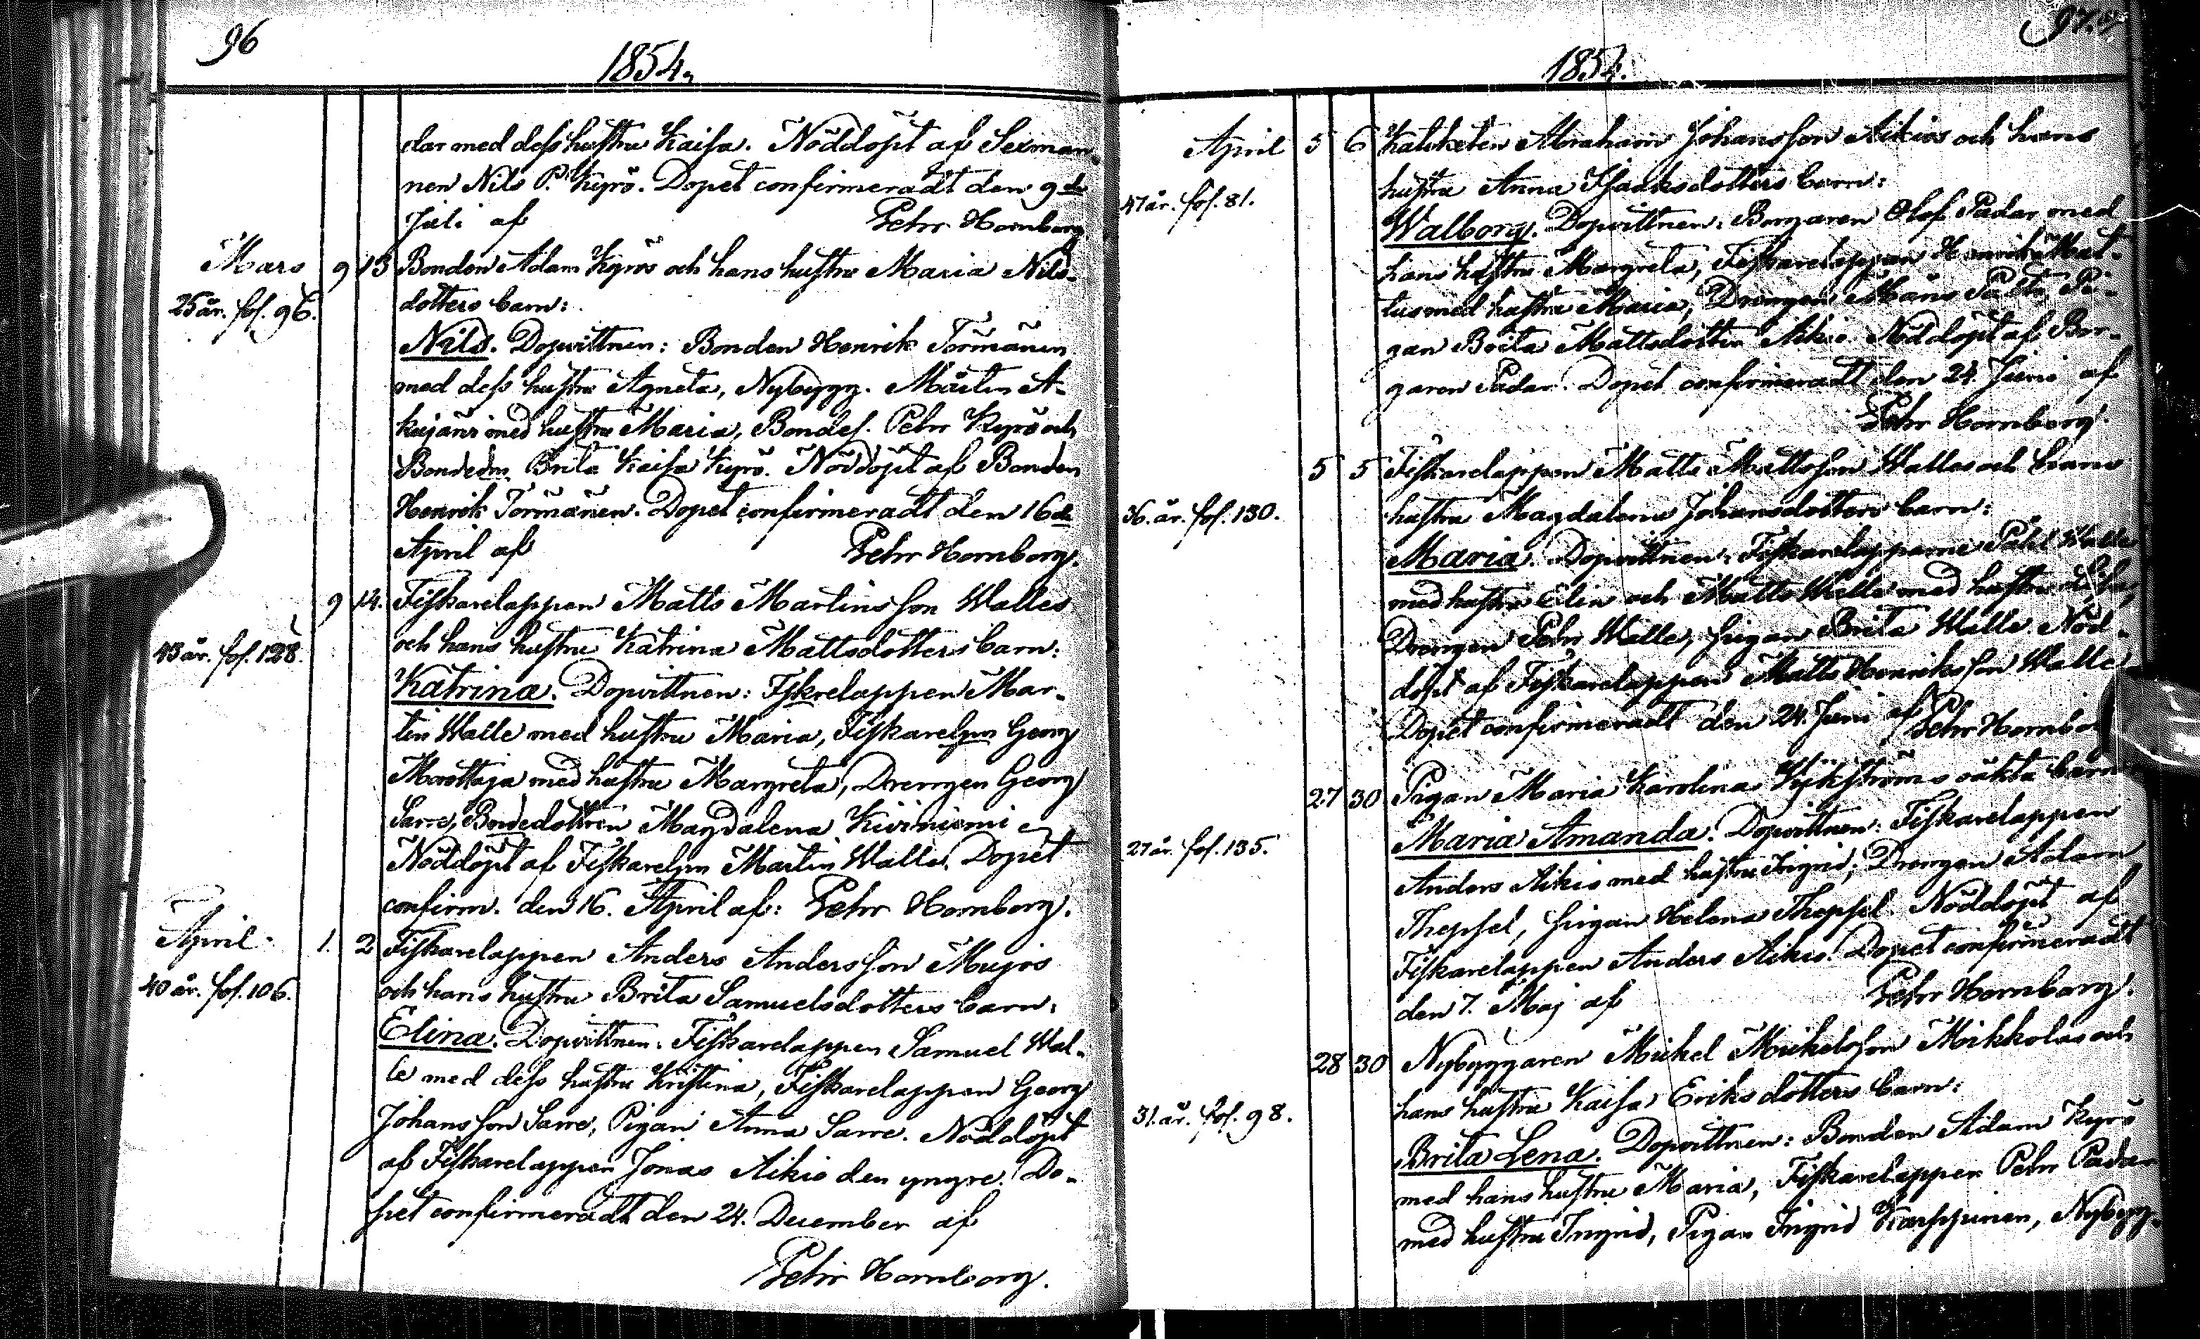 96
1854.
dar med dess hustru Kaisa. Nöddöpt af Sexman-
nen Nils P. Kyrö. Dopet confirmeradt den 9de
Juli af Pehr Hornborg.
Mars 9 13 Bonden Adam Kyrös och hans hustru Maria Nils-
25 år. fol. 96. dotters barn:
Nils. Dopvittnen: Bonden Henrik Törmänen
med dess hustru Agneta, Nybygg. Mårten A-
kujärvi med hustru Maria, Bondes. Pehr Kyrö och
Bondedn Brita Kaisa Kyrö. Nöddöpt af Bonden
Henrik Törmänen. Dopet confirmeradt den 16de
April af Pehr Hornborg.
9 14. Fiskarelappen Matts Martinsson Walles
43 år. fol. 128. och hans hustru Katrina Mattsdotters barn:
Katrina. Dopvittnen: Fiskrelappen Mar-
tin Walle med hustru Maria, Fiskarelpn Georg
Morottaja med hustru Margreta, Drengen Georg
Sarre, Bondedottren Magdalena Kiviniemi
Nöddöpt af Fiskarelpn Martin Walle. Dopet
confirm. den 16. April af: Pehr Hornborg.
April 1. 2 Fiskarelappen Anders Andersson Mujos
40 år. fol. 106. och hans hustru Brita Samuelsdotters barn:
Elina. Dopvittnen: Fiskarelappen Samuel Wal-
le med dess hustru Kristina, Fiskarelappen Georg
Johansson Sarre, Pigan Anna Sarre. Nöddöpt
af Fiskarelappen Jonas Aikio den yngre. Do-
pet confirmeradt den 24. December af
Pehr Hornborg.
97.
1854.
April 5 6 Kateketen Abraham Johansson Aikios och hans
47 år. fol. 81. hustru Anna Isaaksdotters barn:
Walborg. Dopvittnen: Borgaren Olof Padar med
hans hustru Margreta, Fiskarelappen Henrik Mat-
tus med hustru Maria, Drengen Måns Pi-
gan Brita Mattsdotter Aikio. Nöddöpt af Bor-
garen Padar. Dopet confirmeradt den 24. Juni af
Pehr Hornborg.
5 5 Fiskarelappen Matts Mattsson Walles och hans
36. år. fol. 130. hustru Magdalena Johansdotters barn:
Maria. Dopvittnen: Fiskarelapparne Påhl Walle
med hustru Elen och Matts Walle med hustru
Drengen Pehr Walle, pigan Brita Walle. Nöd-
döpt af Fiskarelappen Matts Henriksson Walle.
Dopet confirmeradt den 24. Juni af Pehr Hornbor
27 30 Pigan Maria Karolina Wikströms oäkta barn
27 år. fol. 135. Maria Amanda. Dopvittnen: Fiskarelappen
Anders Aikio med hustru Ingrid, Drengen Adam
Thepsel, pigan Helena Thepsel. Nöddöpt af
Fiskarelappen Anders Aikio. Dopet confirmeradt
den 7. Maj af Pehr Hornborg.
28 30 Nybyggaren Mickel Mickelsson Mikkolas och
31. år. fol. 98. hans hustru Kaisa Eriksdotters barn:
Brita Lena. Dopvittnen: Bonden Adam Kyrö
med hans hustru Maria, Fiskarelappen Pehr Padar
med hustru Ingrid, Pigan Ingrid Karppinen, Nybyg-